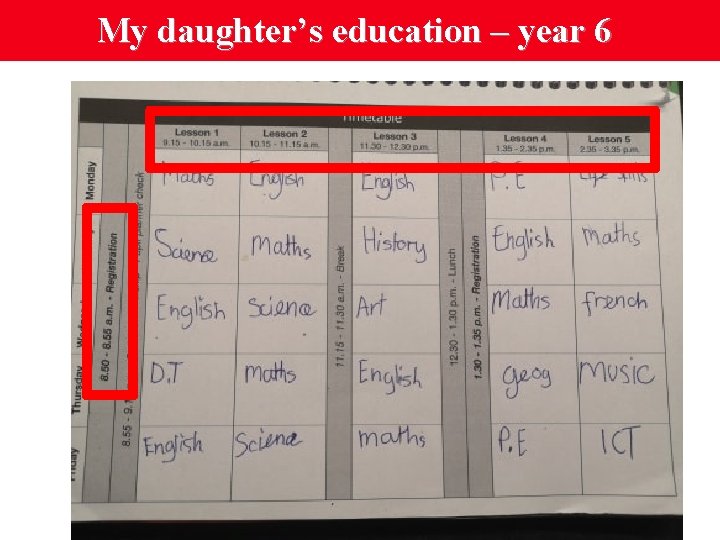 My daughter's education – year 6
Timetable
Lesson 1 Lesson 2 Lesson 3 Lesson 4 Lesson 5
9.15 - 10.15 a.m. 10.15 - 11.15 a.m. 11.30 - 12.30 p.m. 1.35 - 2.35 p.m. 2.35 - 3.35 p.m.
Monday
Maths English English P.E
Science Maths History English Maths
English Science Art Maths french
Thursday
D.T maths English geog MUSIC
English Science maths P.E ICT
8.50 - 8.55 a.m. - Registration
planner check
11.15 - 11.30 a.m. - Break
12.30 - 1.30 p.m. - Lunch
1.30 - 1.35 p.m. - Registration